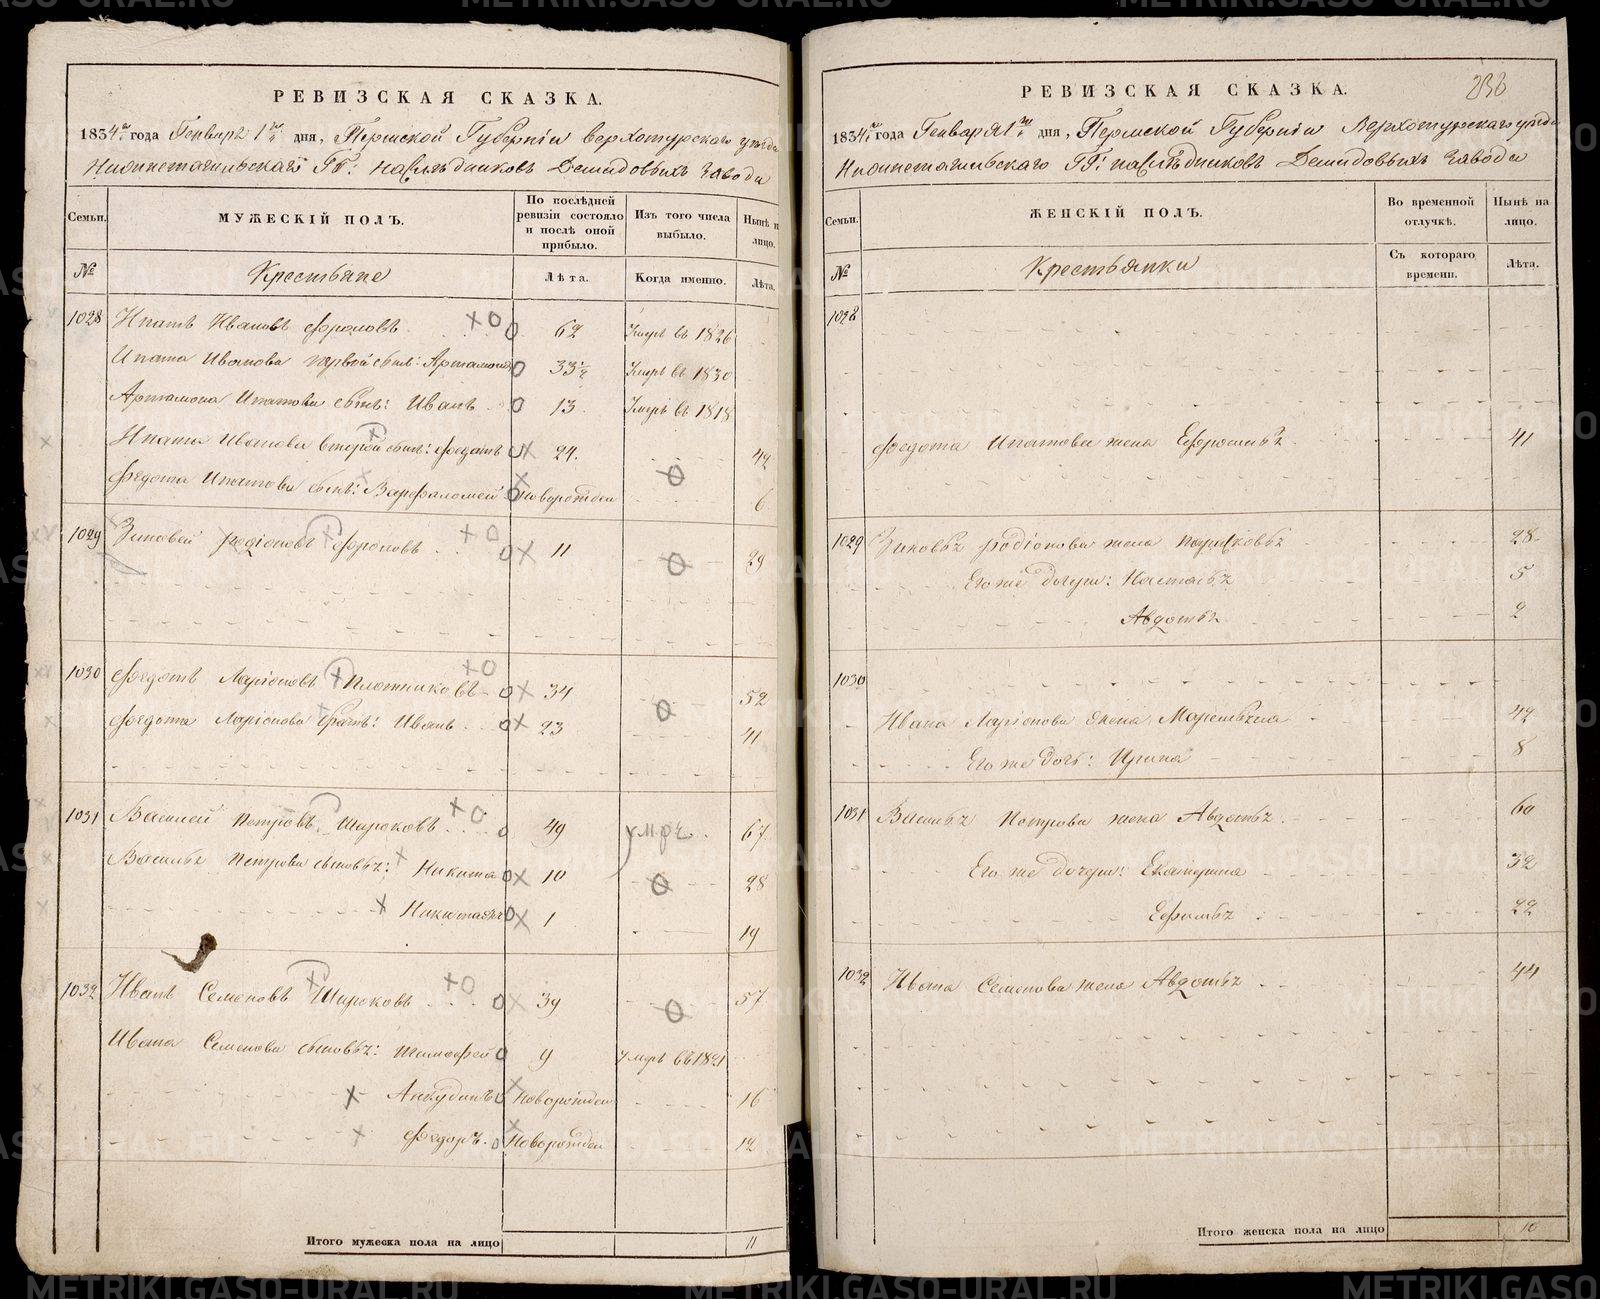 РЕВИЗСКАЯ СКАЗКА.
1834 года Генваря 1 дня, Пермской Губерніи Верхотурскаго уезда
Нижнетагильскаго ГГ: наследниковъ Демидовыхъ завода
Семьи. МУЖЕСКІЙ ПОЛЪ. По послѣдней ревизіи состояло и послѣ оной прибыло. Изъ того числа выбыло. Нынѣ на лицо.
№ Крестьяне Лѣта. Когда именно. Лѣта.
1028 Ипатъ Ивановъ Фроловъ 62 Умре въ 1826
Ипата Иванова первой сынъ: Артамонъ 33½ Умре въ 1830
Артамона Ипатова сынъ: Иванъ 13 Умре въ 1818
Ипата Иванова второй сынъ: Федотъ 24. 42
Федота Ипатова сынъ: Варфаломей новорожден 6
1029 Зиновей Родіоновъ Фроловъ 11 29
1030 Федотъ Ларіоновъ Плотниковъ 34 52
Федота Ларіонова братъ: Иванъ 23 41
1031 Василей Петровъ Широковъ 49 умре 67
Василья Петрова сыновья: Никита 10 28
1 19
1032 Иванъ Семеновъ Широковъ 39 57
Ивана Семенова сыновья: Тимофей 9 Умре въ 1821
Анкудинъ новорожден 16
Федоръ новорожден 12
Итого мужеска пола на лицо 11
РЕВИЗСКАЯ СКАЗКА.
1834 года Генваря 1 дня, Пермской Губерніи Верхотурскаго уезда
Нижнетагильскаго ГГ: наследниковъ Демидовыхъ завода
Семьи. ЖЕНСКІЙ ПОЛЪ. Во временной отлучкѣ. Нынѣ на лицо.
№ Крестьянки Съ котораго времени. Лѣта.
1028
Федота Ипатова жена Ефросинья 41
1029 Зиновья Родіонова жена Парасковья 28
Его же дочери: Настасья 5
Авдотья 2
1030
Ивана Ларіонова жена Маремьяна 42
Его же дочь: Ирина 8
1031 Василья Петрова жена Авдотья 60
Его же дочери: Екатерина 32
Ефимья 22
1032 Ивана Семенова жена Авдотья 44
Итого женска пола на лицо 10
METRIKI.GASO-URAL.RU